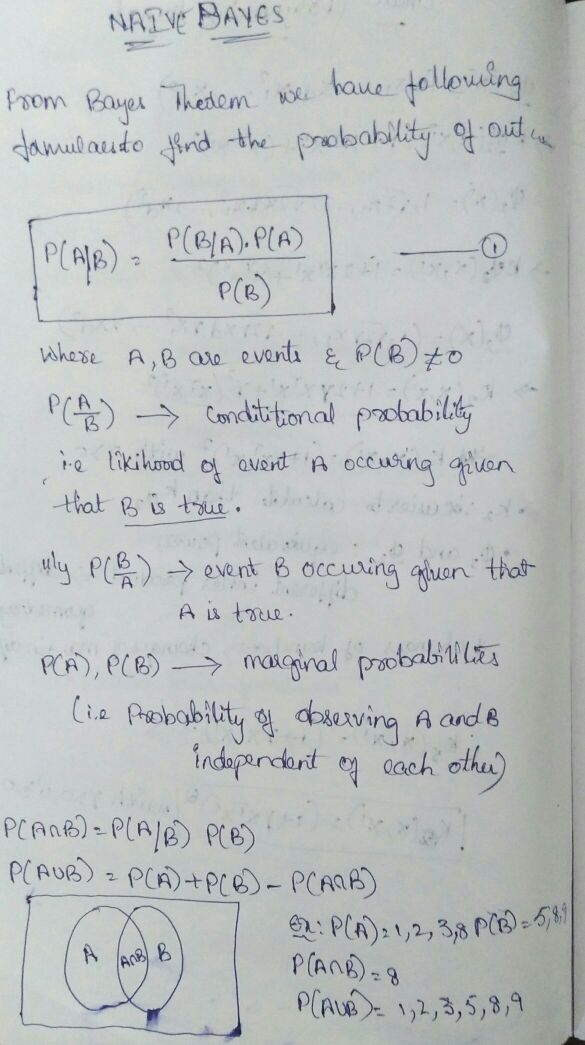 NAIVE BAYES
From Bayes Thedem we have following
famulaesto find the probability of out
P(A/B) = P(B/A).P(A) / P(B) ①
where A, B are events & P(B) ≠ 0
P(A/B) → Conditional probability
i.e likihood of event A occuring given
that B is true.
llly P(B/A) → event B occuring given that
A is true.
P(A), P(B) → marginal probabilities
(i.e Probability of observing A and B
independent of each other)
P(A∩B) = P(A/B) P(B)
P(A∪B) = P(A) + P(B) - P(A∩B)
A A∩B B
Ex: P(A) = 1, 2, 3, 8 P(B) = 5, 8, 9
P(A∩B) = 8
P(A∪B) = 1, 2, 3, 5, 8, 9